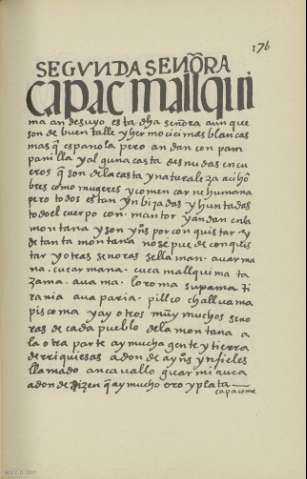 176
SEGVNDA SEÑORA
CAPAC MALLQVI
ma an desuyo esta dha señora aunque
son de buen talle y hermocicimas blancas
mas q̃ espanola pero andan con pam
panilla y algunacasta desnudas encue
ros q̃ son de la casta y naturaleza aci hō
bres como mugeres y comen carne humana
pero todos estan ynbizadas y huntadas
todo el cuerpo con mantor y andan en la
montana y son yns̃ por conquistar y
de tanta montana no se puede conquis
tar y otras señoras se llaman
cucarmana cuca mallquima
ama
rania auaparia pillco challuama
piscoma y ay otros muy muchos seno
ras de cada pueblo de la montana a
la otra parte ay mucha gente y tierra
de rriquiesas adonde ay yns̃ ynfieles
llamado ancauallo
adonde dizen q̃ ay mucho oro y plata
capacome